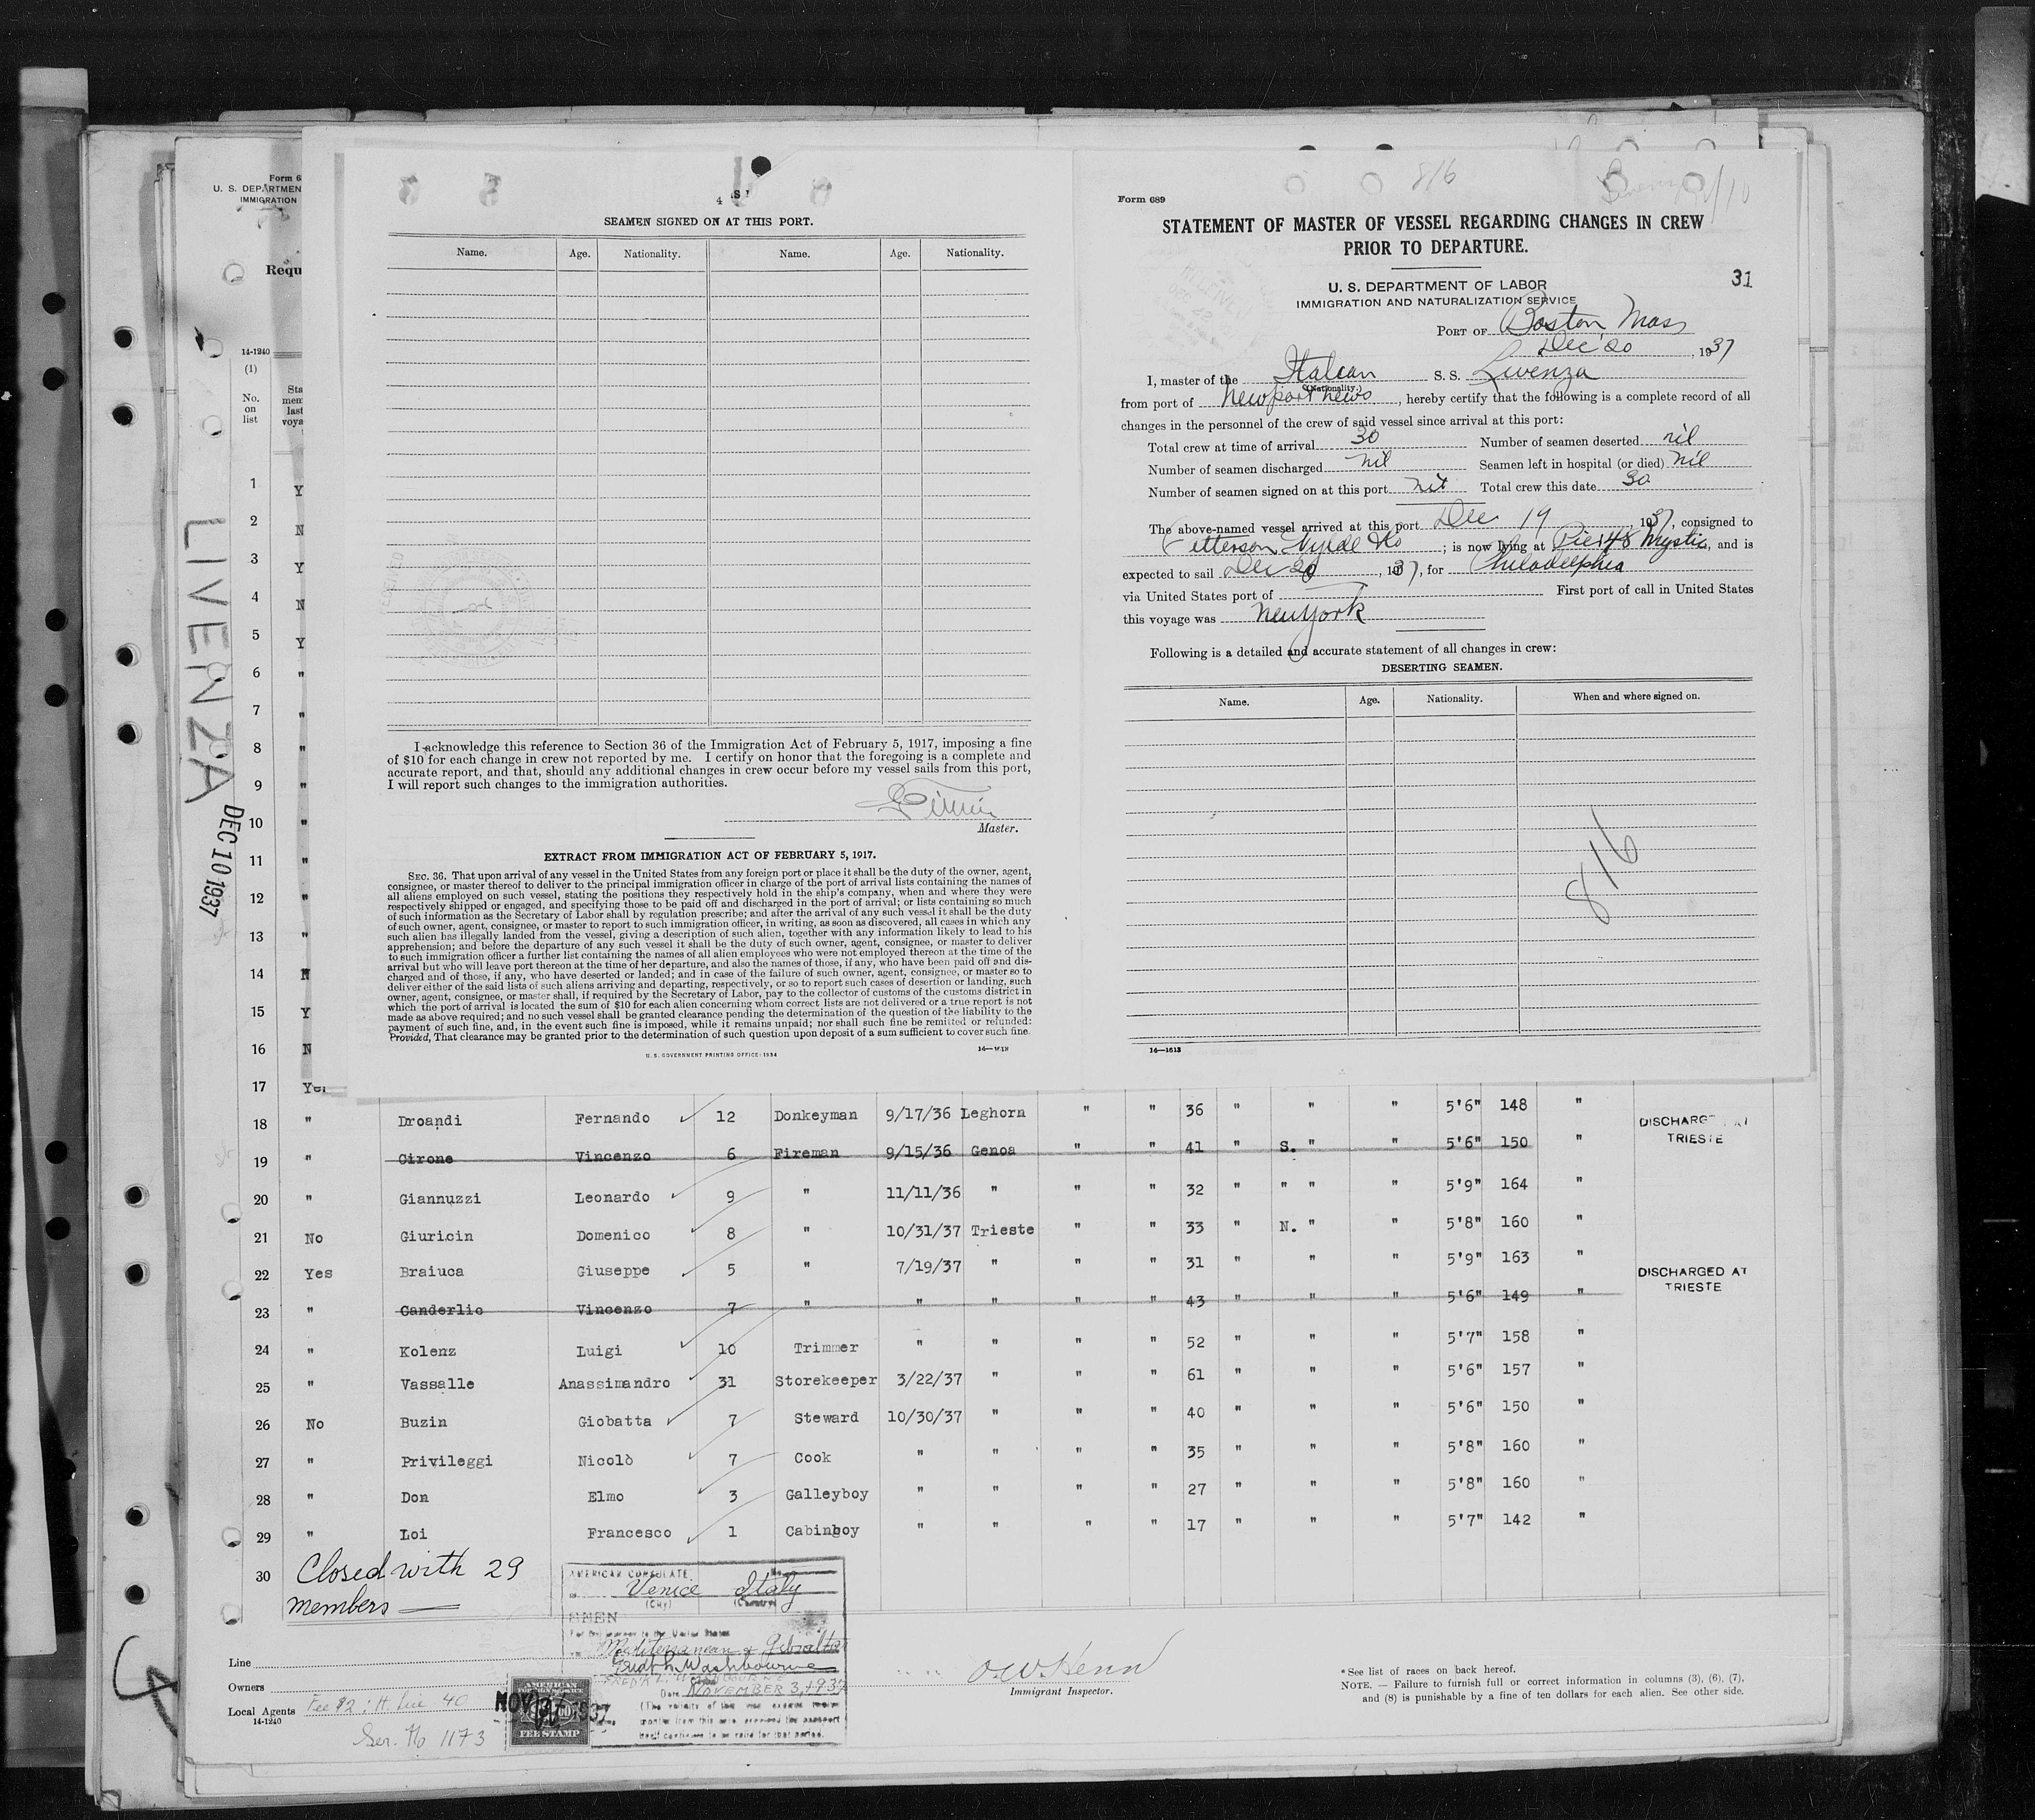 Form 6
U. S. DEPARTMEN
IMMIGRATION
Requ
14-1240
(1)
No. on list
Sta
mem
last
voya
LIVENZA
DEC 10 1937
1 Y
2 N
3 Y
4 N
5 Y
6 "
7 "
8 "
9 "
10 "
11 "
12 "
13 "
14 N
15 Y
16 N
17 Yes
4
SEAMEN SIGNED ON AT THIS PORT.
Name. Age. Nationality. Name. Age. Nationality.
I acknowledge this reference to Section 36 of the Immigration Act of February 5, 1917, imposing a fine
of $10 for each change in crew not reported by me. I certify on honor that the foregoing is a complete and
accurate report, and that, should any additional changes in crew occur before my vessel sails from this port,
I will report such changes to the immigration authorities.
Master.
EXTRACT FROM IMMIGRATION ACT OF FEBRUARY 5, 1917.
SEC. 36. That upon arrival of any vessel in the United States from any foreign port or place it shall be the duty of the owner, agent,
consignee, or master thereof to deliver to the principal immigration officer in charge of the port of arrival lists containing the names of
all aliens employed on such vessel, stating the positions they respectively hold in the ship's company, when and where they were
respectively shipped or engaged, and specifying those to be paid off and discharged in the port of arrival; or lists containing so much
of such information as the Secretary of Labor shall by regulation prescribe; and after the arrival of any such vessel it shall be the duty
of such owner, agent, consignee, or master to report to such immigration officer, in writing, as soon as discovered, all cases in which any
such alien has illegally landed from the vessel, giving a description of such alien, together with any information likely to lead to his
apprehension; and before the departure of any such vessel it shall be the duty of such owner, agent, consignee, or master to deliver
to such immigration officer a further list containing the names of all alien employees who were not employed thereon at the time of the
arrival but who will leave port thereon at the time of her departure, and also the names of those, if any, who have been paid off and dis-
charged and of those, if any, who have deserted or landed; and in case of the failure of such owner, agent, consignee, or master so to
deliver either of the said lists of such aliens arriving and departing, respectively, or so to report such cases of desertion or landing, such
owner, agent, consignee, or master shall, if required by the Secretary of Labor, pay to the collector of customs of the customs district in
which the port of arrival is located the sum of $10 for each alien concerning whom correct lists are not delivered or a true report is not
made as above required; and no such vessel shall be granted clearance pending the determination of the question of the liability to the
payment of such fine, and, in the event such fine is imposed, while it remains unpaid; nor shall such fine be remitted or refunded:
Provided, That clearance may be granted prior to the determination of such question upon deposit of a sum sufficient to cover such fine.
U. S. GOVERNMENT PRINTING OFFICE: 1934
816
Form 689
STATEMENT OF MASTER OF VESSEL REGARDING CHANGES IN CREW
PRIOR TO DEPARTURE.
31
U. S. DEPARTMENT OF LABOR
IMMIGRATION AND NATURALIZATION SERVICE
PORT OF Boston, Mass
Dec 20, 1937
I, master of the Italian S. S. Livenza
(Nationality.)
from port of Newport News, hereby certify that the following is a complete record of all
changes in the personnel of the crew of said vessel since arrival at this port:
Total crew at time of arrival 30 Number of seamen deserted nil
Number of seamen discharged nil Seamen left in hospital (or died) nil
Number of seamen signed on at this port nil Total crew this date 30
The above-named vessel arrived at this port Dec 19, 1937, consigned to
; is now lying at Pier 48 Mystic, and is
expected to sail Dec 20, 1937, for Philadelphia
via United States port of First port of call in United States
this voyage was New York
Following is a detailed and accurate statement of all changes in crew:
DESERTING SEAMEN.
Name. Age. Nationality. When and where signed on.
816
14—1613
18 " Droandi Fernando 12 Donkeyman 9/17/36 Leghorn " " 36 " " " 5'6" 148 "
DISCHARGED AT
TRIESTE
19 " Cirone Vincenzo 6 Fireman 9/15/36 Genoa " " 41 " S. " " 5'6" 150 "
20 " Giannuzzi Leonardo 9 " 11/11/36 " " " 32 " " " " 5'9" 164 "
21 No Giuricin Domenico 8 " 10/31/37 Trieste " " 33 " N. " " 5'8" 160 "
22 Yes Braiuca Giuseppe 5 " 7/19/37 " " " 31 " " " 5'9" 163 "
DISCHARGED AT
TRIESTE
23 " Canderlic Vincenzo 7 " " " " " 43 " " " 5'6" 149 "
24 " Kolenz Luigi 10 Trimmer " " " " 52 " " " 5'7" 158 "
25 " Vassalle Anassimandro 31 Storekeeper 3/22/37 " " " 61 " " " 5'6" 157 "
26 No Buzin Giobatta 7 Steward 10/30/37 " " " 40 " " " 5'6" 150 "
27 " Privileggi Nicolò 7 Cook " " " " 35 " " " 5'8" 160 "
28 " Don Elmo 3 Galleyboy " " " " 27 " " " 5'8" 160 "
29 " Loi Francesco 1 Cabinboy " " " " 17 " " " 5'7" 142 "
30 Closed with 29
members
AMERICAN CONSULATE
Venice Italy
(City) (Country)
Mediterranean & Gibraltar
Date NOVEMBER 3, 1937
Line
Owners
Local Agents
14-1240
Ser. No 1173
AMERICAN
FEE STAMP
NOV 1937
Immigrant Inspector.
* See list of races on back hereof.
NOTE. — Failure to furnish full or correct information in columns (3), (6), (7),
and (8) is punishable by a fine of ten dollars for each alien. See other side.